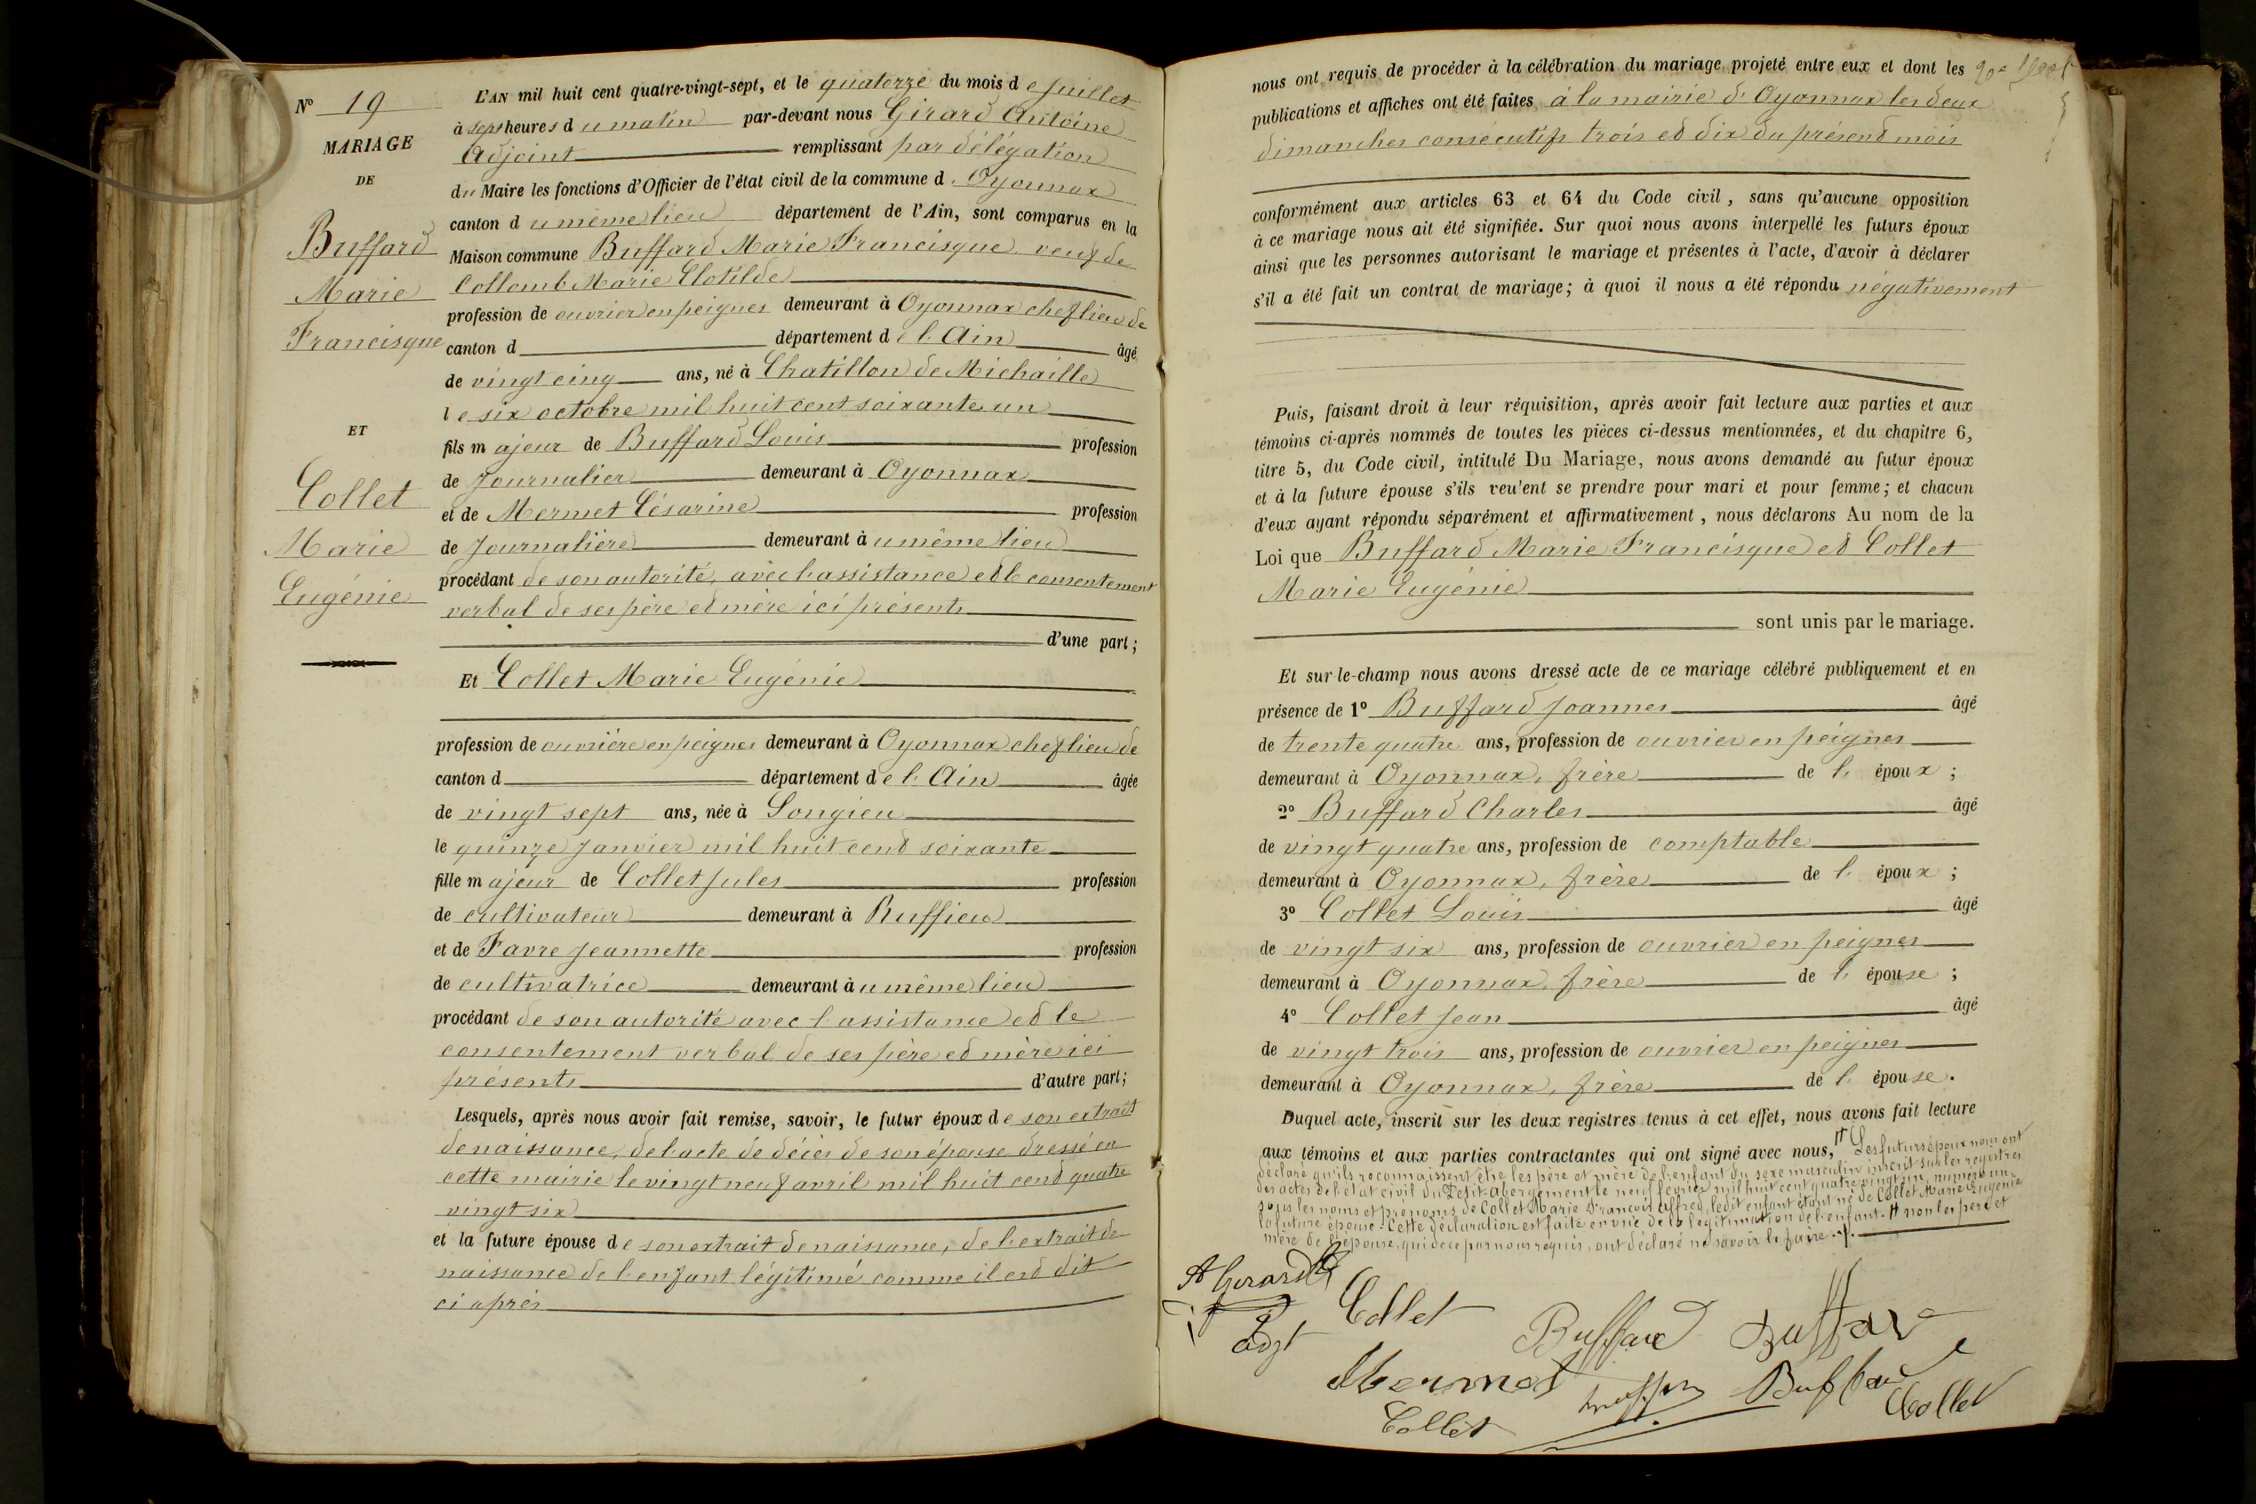 N° 19
MARIAGE
DE
Buffard
Marie
Francisque
ET
Collet
Marie
Eugénie
L'AN mil huit cent quatre-vingt-sept, et le quatorze du mois de juillet
à sept heures du matin par-devant nous Girard Antoine
Adjoint remplissant par délégation
du Maire les fonctions d'Officier de l'état civil de la commune d'Oyonnax
canton du même lieu département de l'Ain, sont comparus en la
Maison commune Buffard Marie Francisque veuf de
Collomb Marie Clotilde
profession de ouvrier en peignes demeurant à Oyonnax chef lieu de
canton d département de l'Ain âgé
de vingt cinq ans, né à Chatillon de Michaille
le six octobre mil huit cent soixante un
fils majeur de Buffard Louis profession
de Journalier demeurant à Oyonnax
et de Mermet Césarine profession
de Journalière demeurant à u même lieu
procédant de son autorité, avec l'assistance et le consentement
verbal de ses père et mère ici présents
d'une part;
Et Collet Marie Eugénie
profession de ouvrière en peignes demeurant à Oyonnax chef lieu de
canton d département de l'Ain âgée
de vingt sept ans, née à Songieu
le quinze janvier mil huit cent soixante
fille majeur de Collet Jules profession
de cultivateur demeurant à Ruffieu
et de Favre Jeannette profession
de cultivatrice demeurant à u même lieu
procédant de son autorité avec l'assistance et le
consentement verbal de ses père et mère ici
présents d'autre part;
Lesquels, après nous avoir fait remise, savoir, le futur époux de son extrait
de naissance, de l'acte de décès de son épouse dressé en
cette mairie le vingt neuf avril mil huit cent quatre
vingt six
et la future épouse de son extrait de naissance, de l'extrait de
naissance de l'enfant légitimé comme il est dit
ci après
nous ont requis de procéder à la célébration du mariage projeté entre eux et dont les
publications et affiches ont été faites à la mairie d'Oyonnax les deux
dimanches consécutifs trois et dix du présent mois
conformément aux articles 63 et 64 du Code civil, sans qu'aucune opposition
à ce mariage nous ait été signifiée. Sur quoi nous avons interpellé les futurs époux
ainsi que les personnes autorisant le mariage et présentes à l'acte, d'avoir à déclarer
s'il a été fait un contrat de mariage; à quoi il nous a été répondu négativement
Puis, faisant droit à leur réquisition, après avoir fait lecture aux parties et aux
témoins ci-après nommés de toutes les pièces ci-dessus mentionnées, et du chapitre 6,
titre 5, du Code civil, intitulé Du Mariage, nous avons demandé au futur époux
et à la future épouse s'ils veu'ent se prendre pour mari et pour femme; et chacun
d'eux ayant répondu séparément et affirmativement, nous déclarons Au nom de la
Loi que Buffard Marie Francisque et Collet
Marie Eugénie
sont unis par le mariage.
Et sur-le-champ nous avons dressé acte de ce mariage célébré publiquement et en
présence de 1° Buffard Joannes âgé
de trente quatre ans, profession de ouvrier en peignes
demeurant à Oyonnax, frère de l'époux;
2° Buffard Charles âgé
de vingt quatre ans, profession de comptable
demeurant à Oyonnax, frère de l'époux;
3° Collet Louis âgé
de vingt six ans, profession de ouvrier en peignes
demeurant à Oyonnax, frère de l'épouse;
4° Collet Jean âgé
de vingt trois ans, profession de ouvrier en peignes
demeurant à Oyonnax, frère de l'épouse.
Duquel acte, inscrit sur les deux registres tenus à cet effet, nous avons fait lecture
aux témoins et aux parties contractantes qui ont signé avec nous, Les futurs époux nous ont
déclaré qu'ils reconnaissent être les père et mère de l'enfant du sexe masculin inscrit sur les registres
des actes de l'état civil du Petit-Abergement le neuf février mil huit cent quatre vingt un, numéro un
sous les noms et prénoms de Collet Marie François Alfred, ledit enfant étant né de Collet Marie Eugénie
la future épouse. Cette déclaration est faite en vue de la légitimation de l'enfant. non les père et
mère de l'épouse, qui de ce par nous requis, ont déclaré ne savoir le faire.
A Girard
adjt
Collet
Buffard
Buffard
Mermet
Buffard
Collet
Collet